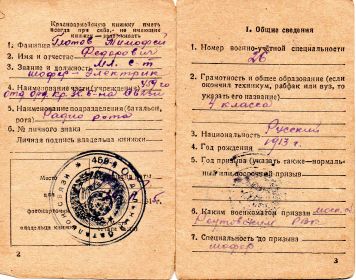 Красноармейскую книжку иметь
всегда при себе. Не имеющих
книжек — задерживать
1. Фамилия Глотов Тимофей
2. Имя и отчество Федорович
3. Звание и должность Мл. с-т
шофер-электрик
4. Наименование части (учреждения) 459
5. Наименование подразделения (батальон,
рота) Радио рота
6. № личного знака
Личная подпись владельца книжки
Место
для
фотокарточки
владельца книжки
2
I. Общие сведения
1. Номер военно-учетной специальности
26
2. Грамотность и общее образование (если
окончил техникум, рабфак или вуз, то
указать его название)
4 класса
3. Национальность Русский
4. Год рождения 1913 г.
5. Год призыва (указать также—нормаль-
ный или досрочный призыв)
6. Каким военкоматом призван Моск.
Реутовским РВК
7. Специальность до призыва
шофер
3